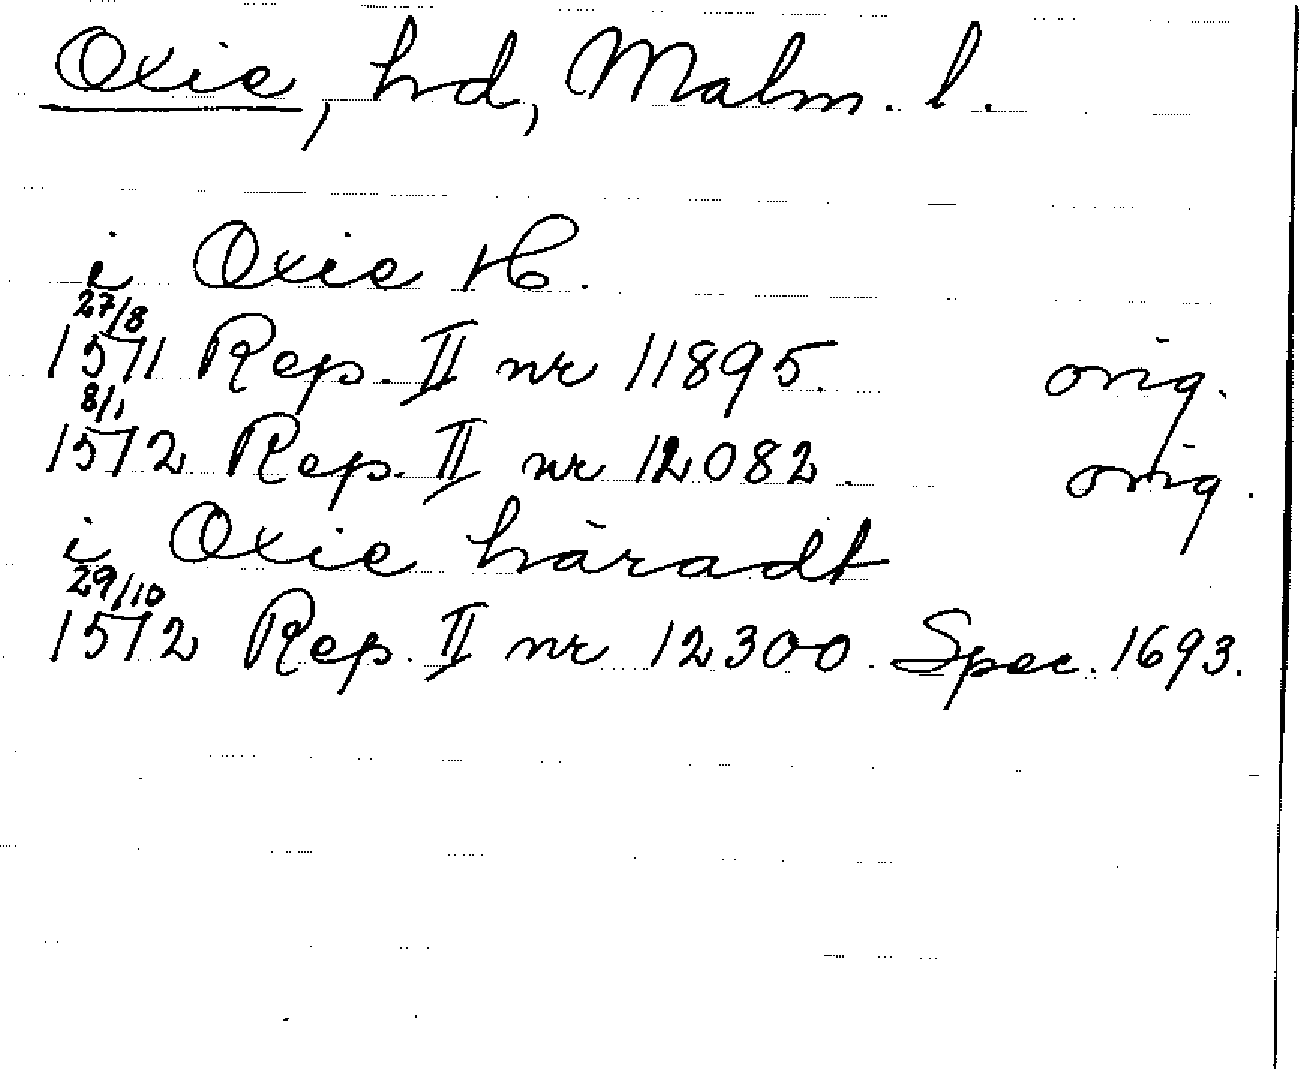 Oxie, hd, Malm. l.
i Oxie H.
27/8
1571 Rep. II nr 11895. orig.
8/1
1572 Rep. II nr 12082. orig.
i Oxie häradt
29/10
1572 Rep. II nr 12300. Spec. 1693.